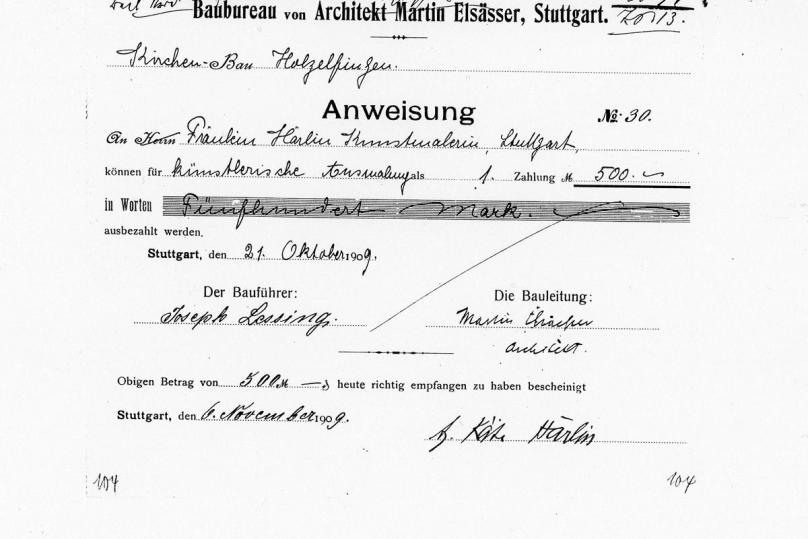 Baubureau von Architekt Martin Elsässer, Stuttgart.
Kirchen-Bau Holzelfingen.
Anweisung No. 30.
An Herrn Fräulein Härlin Kunstmalerin, Stuttgart,
können für künstlerische Ausmalung als 1. Zahlung M 500.-
in Worten Fünfhundert Mark.
ausbezahlt werden.
Stuttgart, den 21. Oktober 1909.
Der Bauführer: Die Bauleitung:
Joseph Lessing. Martin Elsaesser
Architekt.
Obigen Betrag von 500 M — ₰ heute richtig empfangen zu haben bescheinigt
Stuttgart, den 6. November 1909.
Käte Härlin
104 104